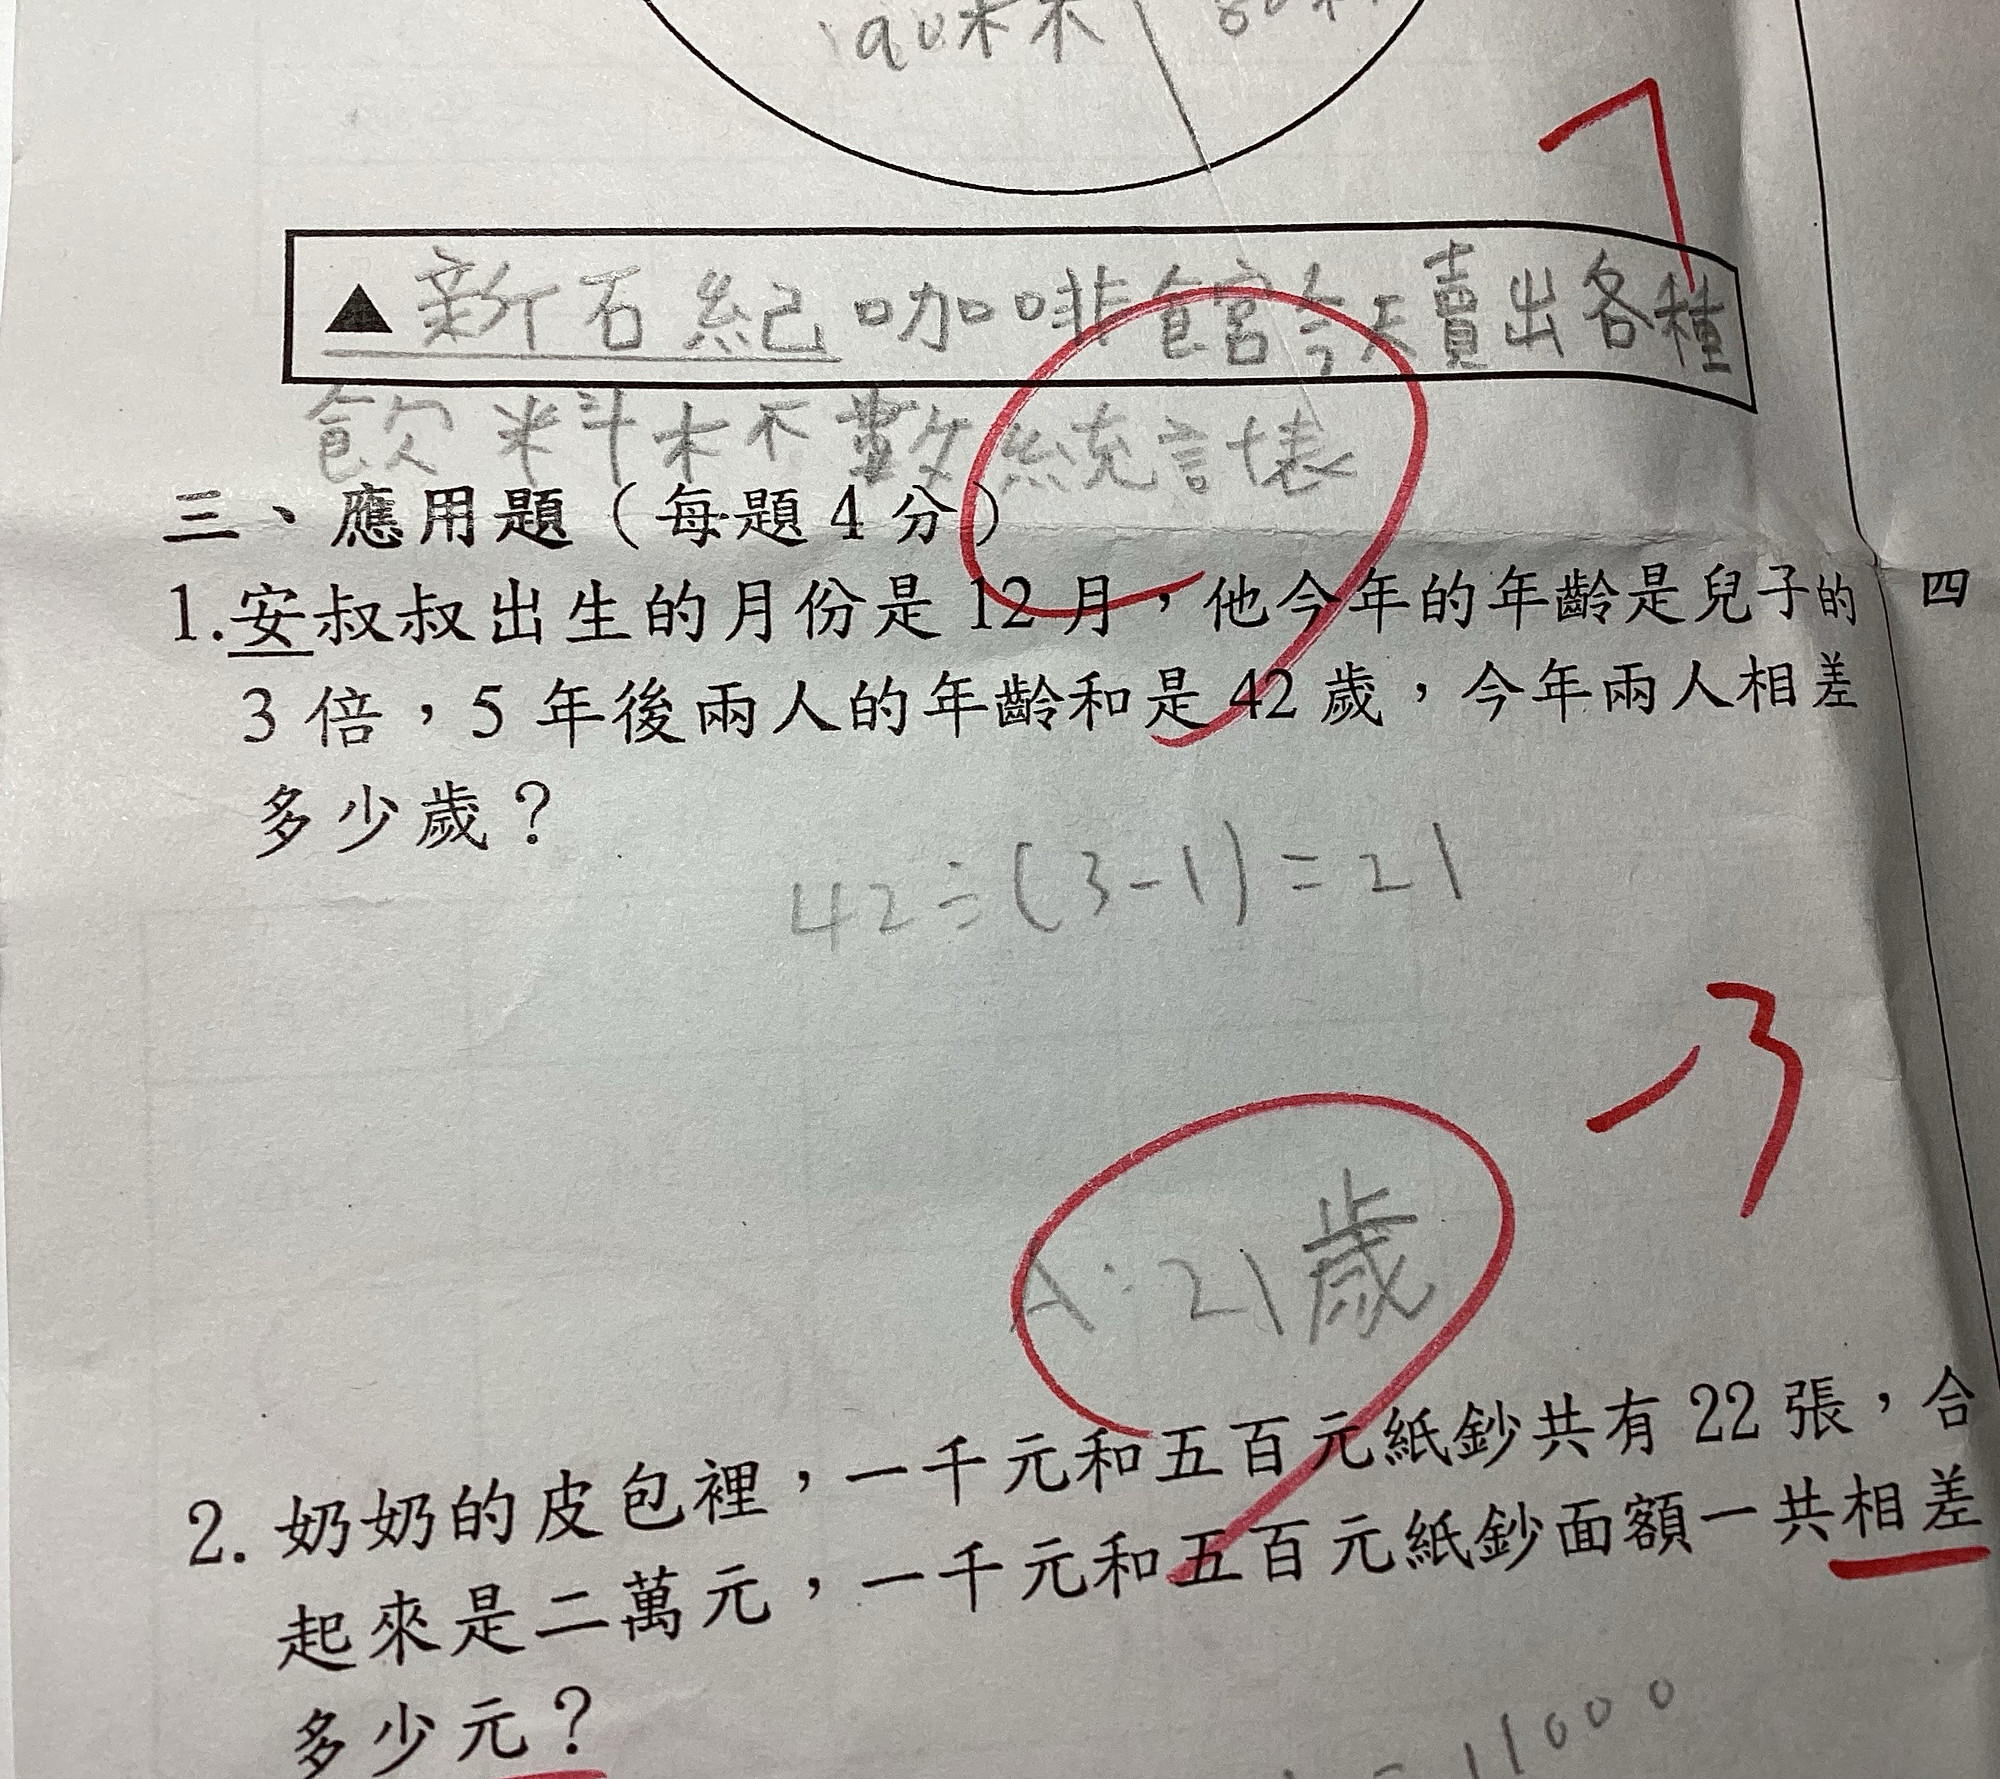 90杯
▲新石紀咖啡館今天賣出各種
飲料杯數統計表
三、應用題（每題4分）
1.安叔叔出生的月份是12月，他今年的年齡是兒子的
3倍，5年後兩人的年齡和是42歲，今年兩人相差
多少歲？
42÷(3-1)=21
-3
A:21歲
2.奶奶的皮包裡，一千元和五百元紙鈔共有22張，合
起來是二萬元，一千元和五百元紙鈔面額一共相差
多少元？
=11000
四